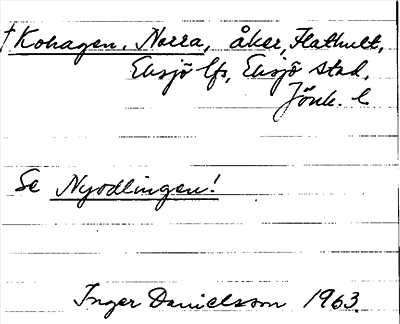 †Kohagen, Norra, åker, Flathult,
Eksjö lfs, Eksjö stad,
Jönk. l
Se Nyodlingen!
Inger Danielsson 1963.